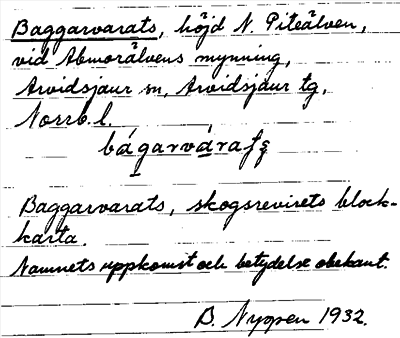 Baggarvarats, höjd N. Piteälven,
vid Abmorälvens mynning,
Arvidsjaur sn, Arvidsjaur tg,
Norrb. l.
bágarvárats
Baggarvarats, skogsrevirets block-
karta.
Namnets uppkomst och betydelse obekant.
B. Nygren 1932.